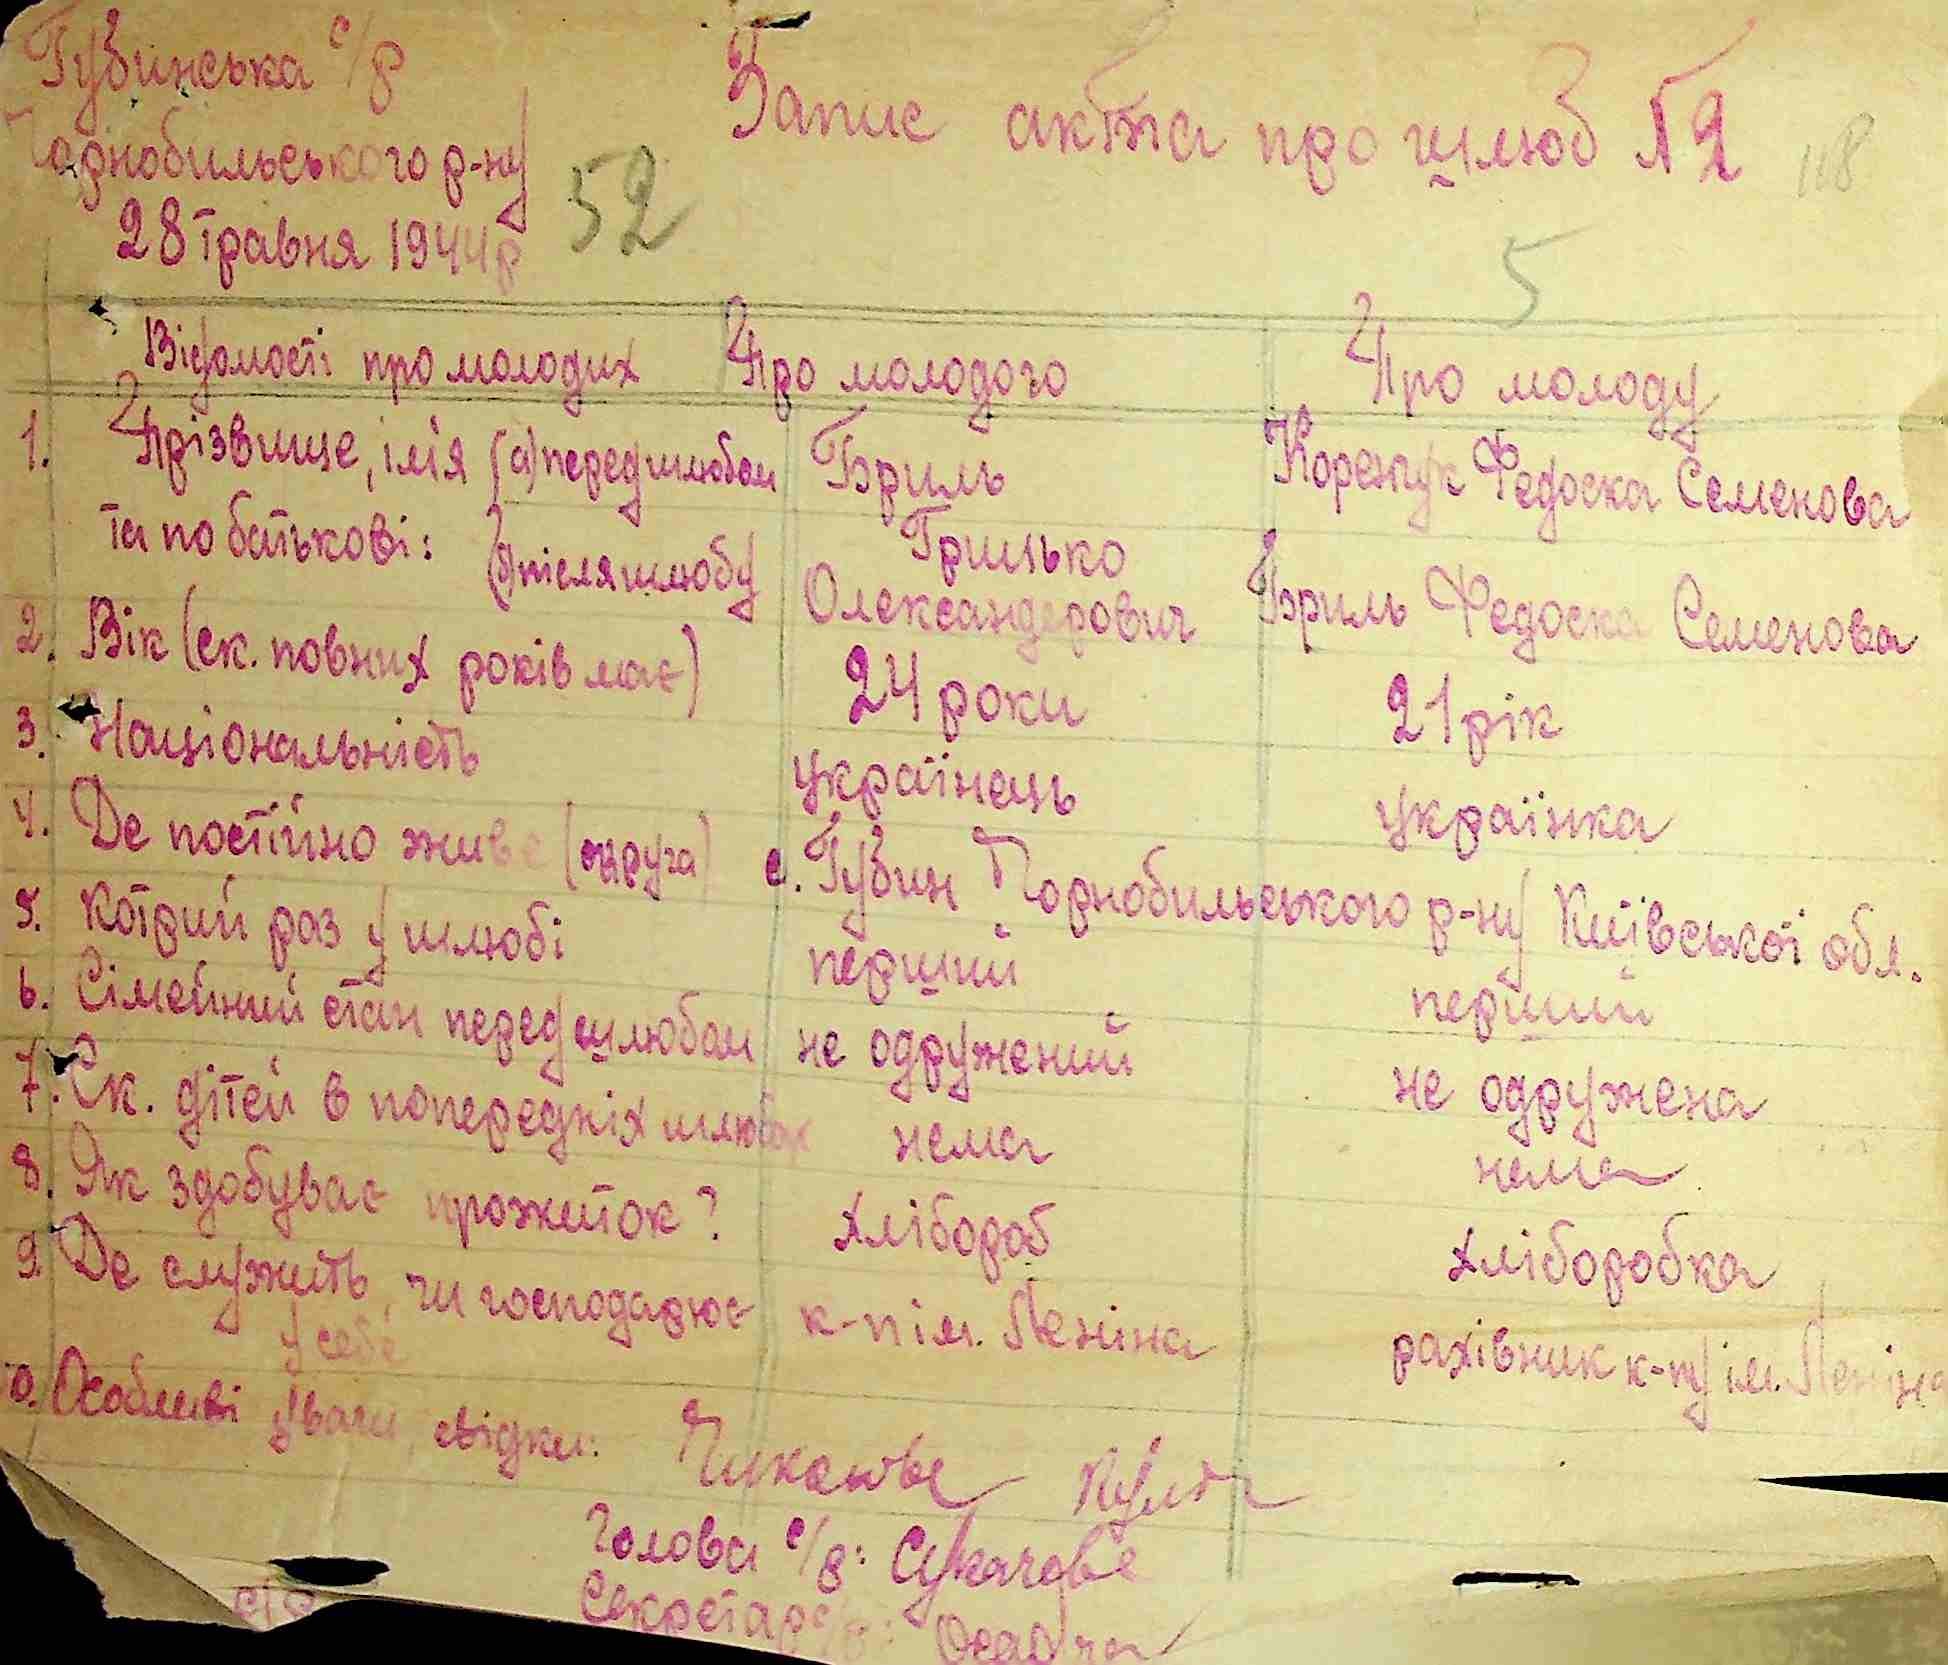 Губинська с/р
Чорнобильського р-ну
28 травня 1944 р
52
Запис акта про шлюб № 2
118
5
Відомості про молодих Про молодого Про молоду
1. Прізвище, ім'я (а) перед шлюбом Бриль Федоска Семенова
та по батькові: (б) після шлюбу Грицько Олександрович Бриль Федоска Семенова
2. Вік (ск. повних років має) 24 роки 21 рік
3. Національність українець українка
4. Де постійно живе (округа) с. Губин Чорнобильського р-ну Київської обл.
5. Котрий раз у шлюбі перший перший
6. Сімейний стан перед шлюбом не одружений не одружена
7. Ск. дітей в попередніх шлюбах нема нема
8. Як здобуває прожиток? хлібороб хліборобка
9. Де служить, чи господарює к-п ім. Леніна рахівник к-пу ім. Леніна
у себе
0. Особливі уваги, свідки:
Голова с/р:
Секретар с/р: